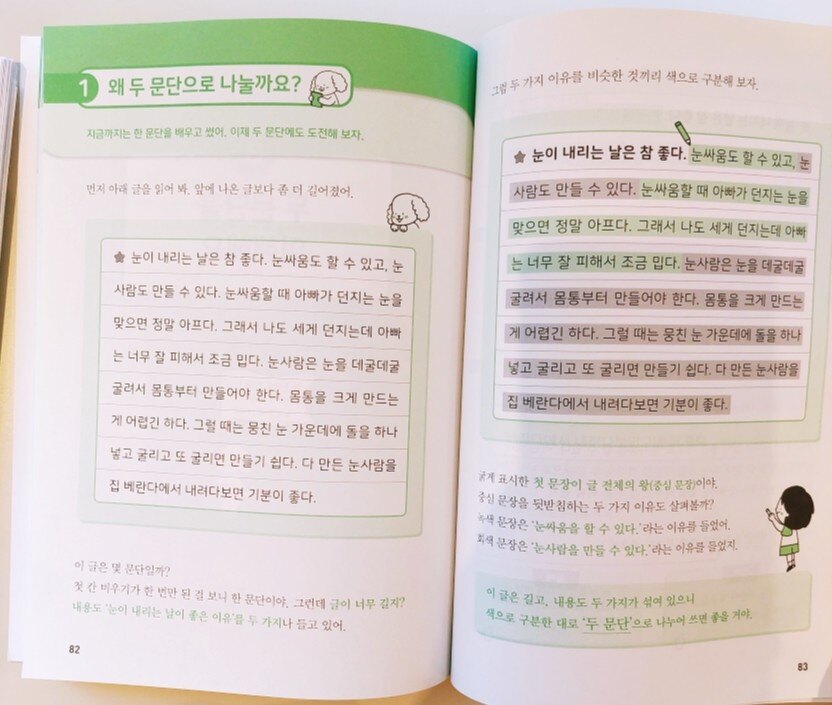 1 왜 두 문단으로 나눌까요?
지금까지는 한 문단을 배우고 썼어. 이제 두 문단에도 도전해 보자.
먼저 아래 글을 읽어 봐. 앞에 나온 글보다 좀 더 길어졌어.
★ 눈이 내리는 날은 참 좋다. 눈싸움도 할 수 있고, 눈
사람도 만들 수 있다. 눈싸움할 때 아빠가 던지는 눈을
맞으면 정말 아프다. 그래서 나도 세게 던지는데 아빠
는 너무 잘 피해서 조금 밉다. 눈사람은 눈을 데굴데굴
굴려서 몸통부터 만들어야 한다. 몸통을 크게 만드는
게 어렵긴 하다. 그럴 때는 뭉친 눈 가운데에 돌을 하나
넣고 굴리고 또 굴리면 만들기 쉽다. 다 만든 눈사람을
집 베란다에서 내려다보면 기분이 좋다.
이 글은 몇 문단일까?
첫 칸 비우기가 한 번만 된 걸 보니 한 문단이야. 그런데 글이 너무 길지?
내용도 '눈이 내리는 날이 좋은 이유'를 두 가지나 들고 있어.
82
그럼 두 가지 이유를 비슷한 것끼리 색으로 구분해 보자.
★ 눈이 내리는 날은 참 좋다. 눈싸움도 할 수 있고, 눈
사람도 만들 수 있다. 눈싸움할 때 아빠가 던지는 눈을
맞으면 정말 아프다. 그래서 나도 세게 던지는데 아빠
는 너무 잘 피해서 조금 밉다. 눈사람은 눈을 데굴데굴
굴려서 몸통부터 만들어야 한다. 몸통을 크게 만드는
게 어렵긴 하다. 그럴 때는 뭉친 눈 가운데에 돌을 하나
넣고 굴리고 또 굴리면 만들기 쉽다. 다 만든 눈사람을
집 베란다에서 내려다보면 기분이 좋다.
굵게 표시한 첫 문장이 글 전체의 왕(중심 문장)이야.
중심 문장을 뒷받침하는 두 가지 이유도 살펴볼까?
녹색 문장은 '눈싸움을 할 수 있다.'라는 이유를 들었어.
회색 문장은 '눈사람을 만들 수 있다.'라는 이유를 들었지.
이 글은 길고, 내용도 두 가지가 섞여 있으니
색으로 구분한 대로 '두 문단'으로 나누어 쓰면 좋을 거야.
83